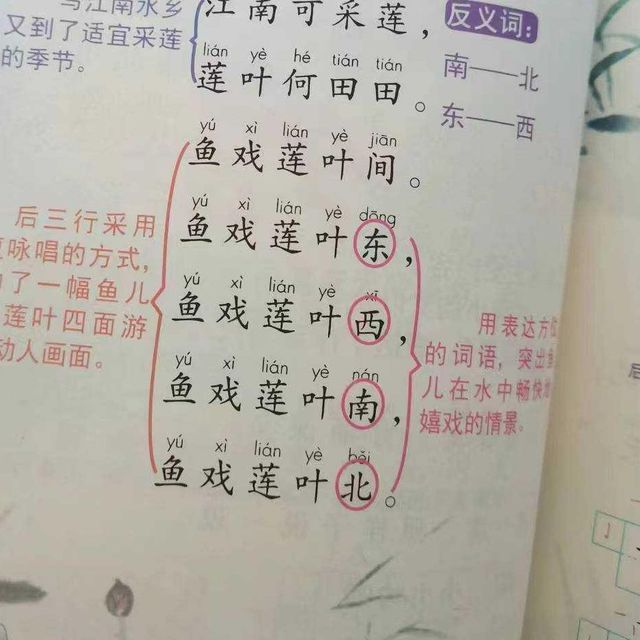 写江南水乡
又到了适宜采莲
的季节。
江南可采莲，
lián yè hé tián tián
莲叶何田田。
反义词：
南——北
东——西
yú xì lián yè jiān
鱼戏莲叶间。
yú xì lián yè dōng
鱼戏莲叶东，
yú xì lián yè xī
鱼戏莲叶西，
yú xì lián yè nán
鱼戏莲叶南，
yú xì lián yè běi
鱼戏莲叶北。
后三行采用
咏唱的方式，
了一幅鱼儿
莲叶四面游
动人画面。
用表达方位
的词语，突出鱼
儿在水中畅快地
嬉戏的情景。